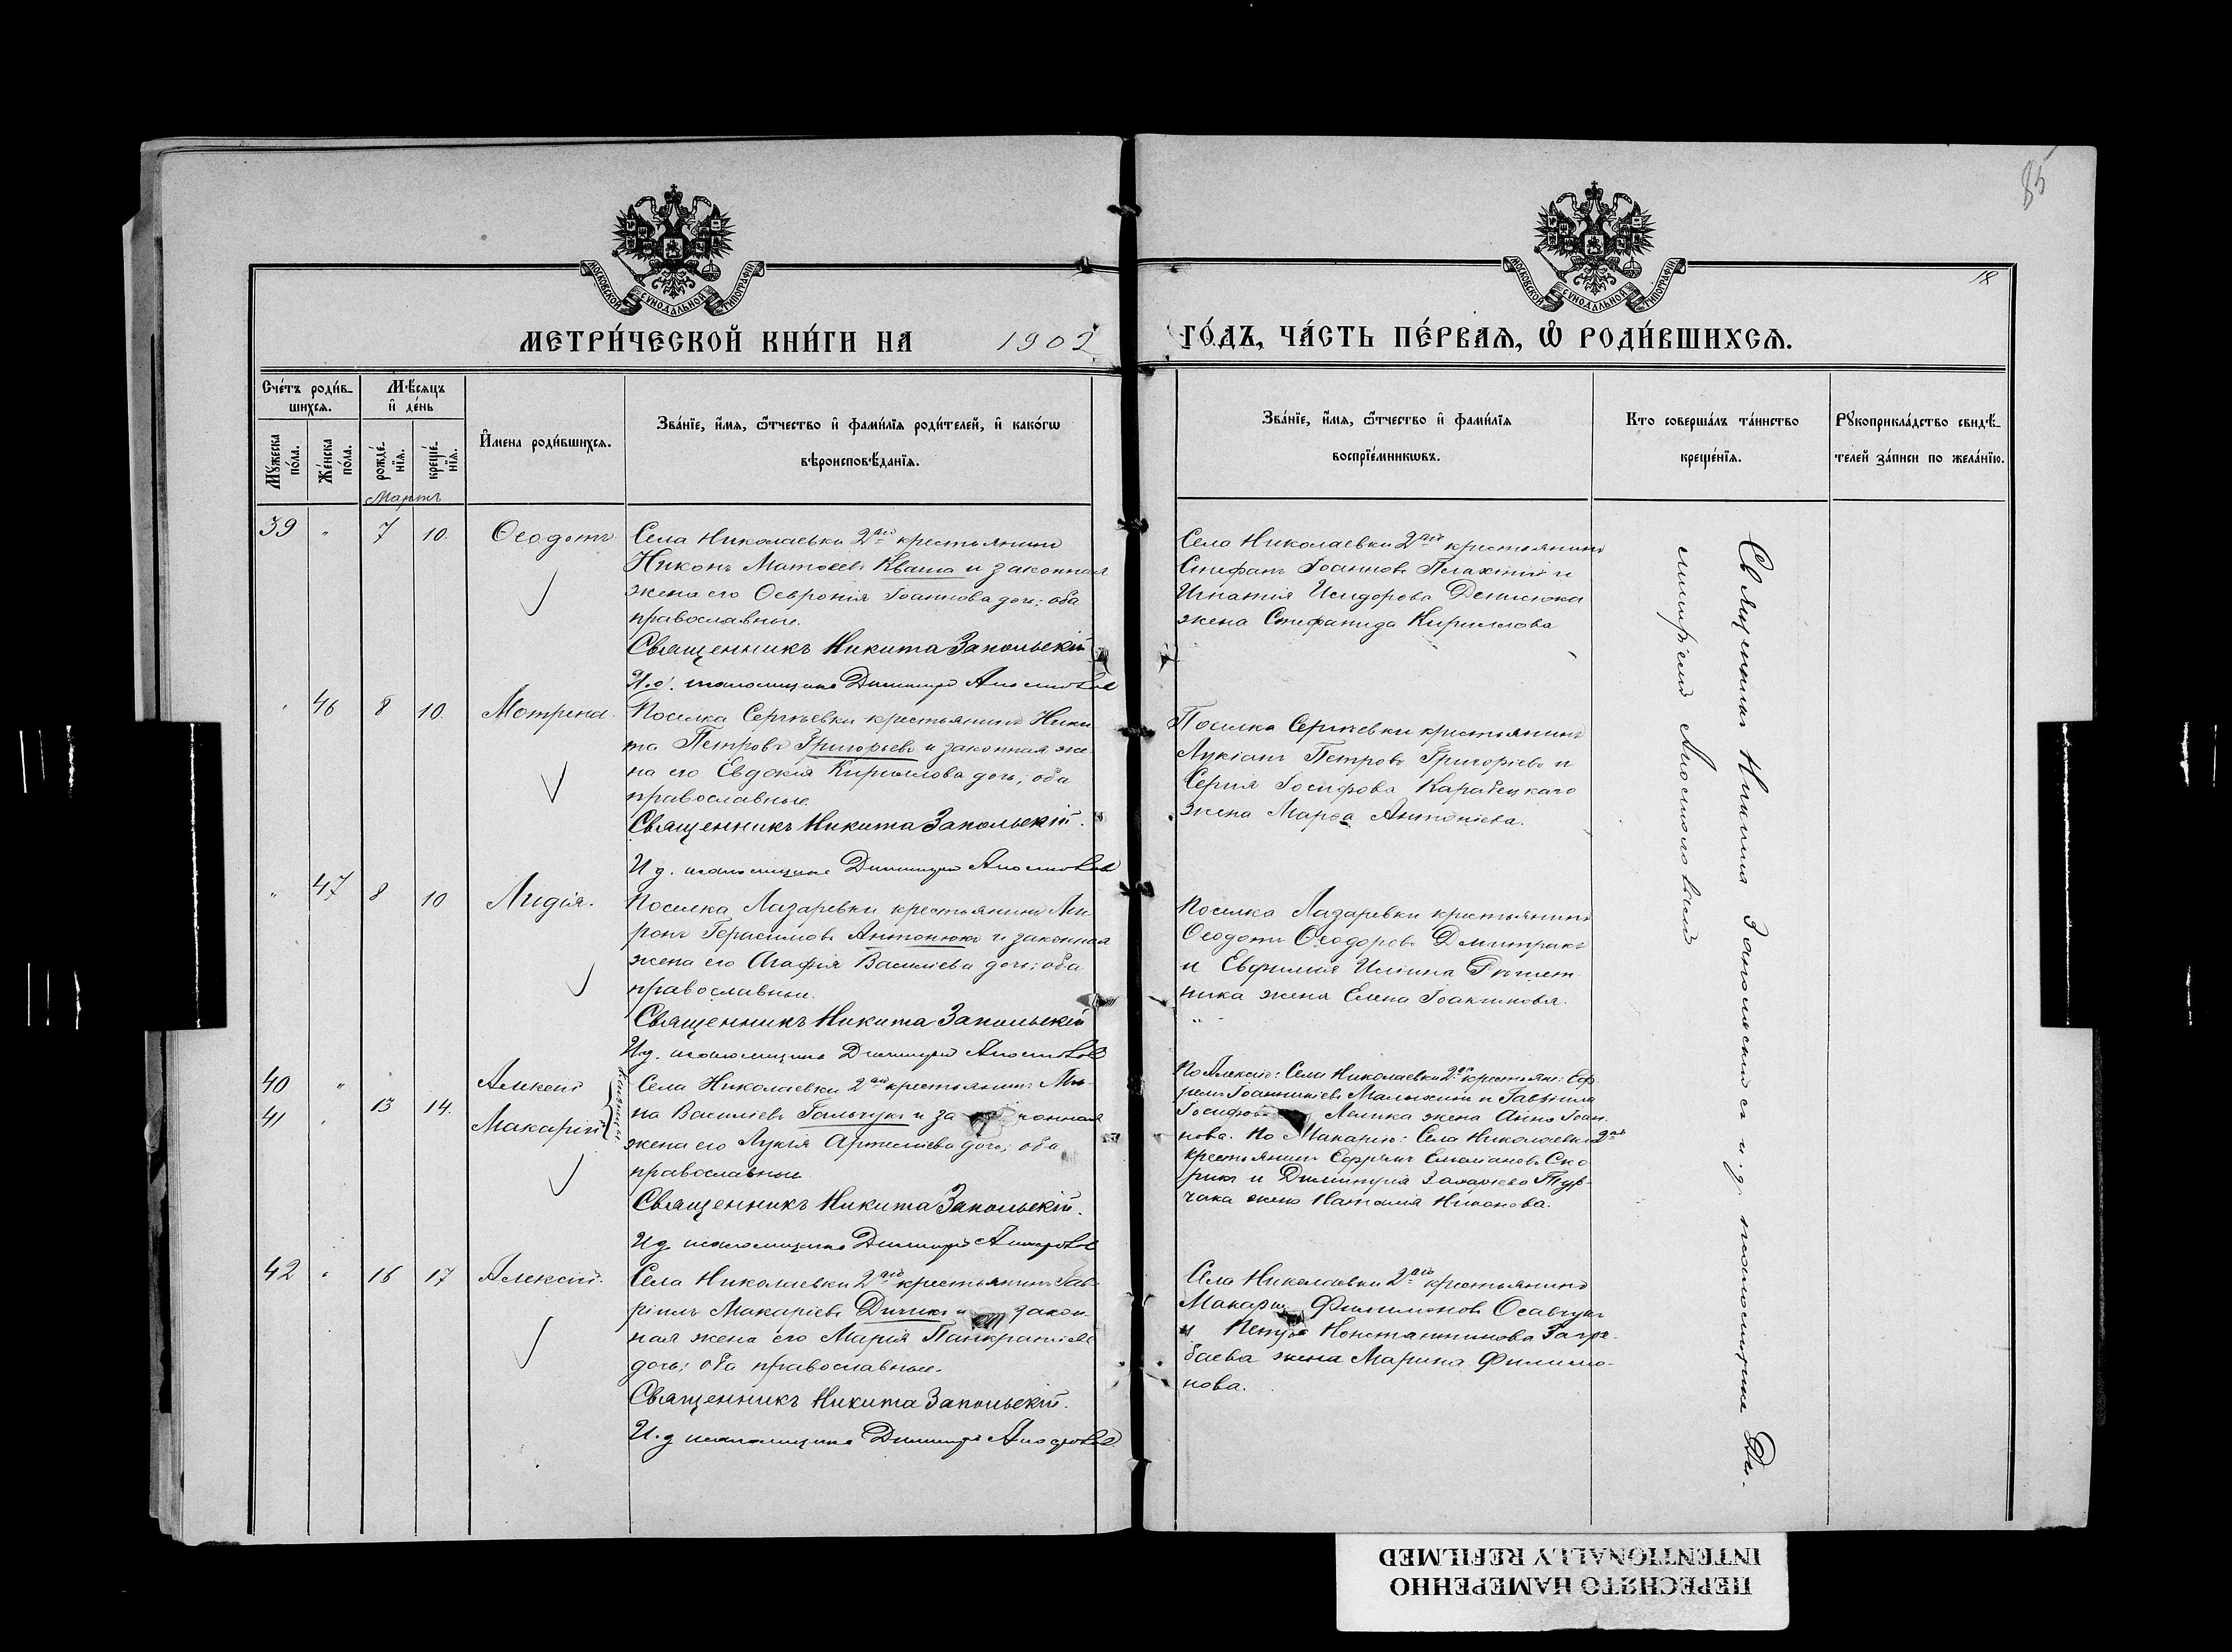 85
18
МОСКОВСКОЙ СѴНОДАЛЬНОЙ ТИПОГРАФІИ
МОСКОВСКОЙ СѴНОДАЛЬНОЙ ТИПОГРАФІИ
МЕТРИ́ЧЕСКОЙ КНИ́ГИ НА 1902 ГО́ДЪ, ЧА́СТЬ ПЕ́РВАѦ, Ѽ РОДИ́ВШИХСѦ.
Сче́тъ роди́в-
шихсѧ.
Му́жеска по́ла.
Же́нска по́ла.
Мѣ́сѧцъ
и҆ де́нь
рожде́нїѧ.
креще́нїѧ.
И҆мена роди́вшихсѧ.
Зва́нїе, и҆́мѧ, ѻ҆́тчество и҆ фами́лїѧ роди́телей, и҆ како́гѡ
вѣроисповѣ́данїѧ.
Зва́нїе, и҆́мѧ, ѻ҆́тчество и҆ фами́лїѧ
воспрїе́мникѡвъ.
Кто соверша́лъ та́инство
креще́нїѧ.
Рꙋкоприкла́дство свидѣ́-
телей за́писи по жела́нїю.
Мартъ
39 " 7 10. Ѳеодотъ
Села Николаевки 2ой крестьянинъ
Никонъ Матѳеевъ Кваша и законная
жена его Ѳевронія Іоаннова дочь; оба
православные.
Священникъ Никита Запольскій
И.д. псаломщика Димитрій
Села Николаевки 2ой крестьянинъ
Стефанъ Іоанновъ Плахтій и
Игнатія Исидорова Денисюка
жена Стефанида Кириллова
" 46 8 10. Мотрена.
Поселка Сергѣевки крестьянинъ Ники
та Петровъ Григорьевъ и законная же
на его Евдокія Кириллова дочь; оба
православные.
Священникъ Никита Запольскій.
И д. псаломщика Димитрій
Поселка Сергѣевки крестьянинъ
Лукіанъ Петровъ Григоріевъ и
Сергія Іосифова Карабецкаго
жена Марѳа Антоніева.
" 47 8 10 Лидія.
Поселка Лазаревки крестьянинъ Ми
ронъ Герасимовъ Антонюкъ и законная
жена его Агафія Василіева дочь; оба
православные.
Священникъ Никита Запольскій
И.д. псаломщика Димитрій
Поселка Лазаревки крестьянинъ
Ѳеодотъ Ѳеодоровъ Дмитракъ
и Евфимія Иліина
ника жена Елена Іоакимова.
40 " Алексій
41 " 13 14. Макарій
близнецы
Села Николаевки 2ой крестьянинъ
на Василіевъ Гальчукъ и законная
жена его Лукія Артеміева дочь; оба
православные
Священникъ Никита Запольскій.
И д. псаломщика Димитрій
По Алексію: Села Николаевки 2ой крестьян: Еф
ремъ Іоанникіевъ и Гавріила
Іосифова жена Анна Іоан
нова. По Макарію: Села Николаевки 2ой
крестьянинъ Ефремъ Емеліановъ Ско
рикъ и Димитрія Захаріева Тур-
чака жена Наталія Никонова.
42 " 16 17 Алексій.
Села Николаевки 2ой крестьянинъ Гав-
ріилъ Макаріевъ и закон
ная жена его Марія Панкратіева
дочь; оба православные.
Священникъ Никита Запольскій.
И.д псаломщика Димитрій
Села Николаевки 2ой крестьянинъ
Макарій Филимоновъ Осавчукъ
и Петра Константинова
баева жена Марина Филимо-
нова.
Священникъ Никита Запольскій съ и.д. псаломщика Ди-
митріемъ
ПЕРЕСНЯТО НАМЕРЕННО
INTENTIONALLY REFILMED